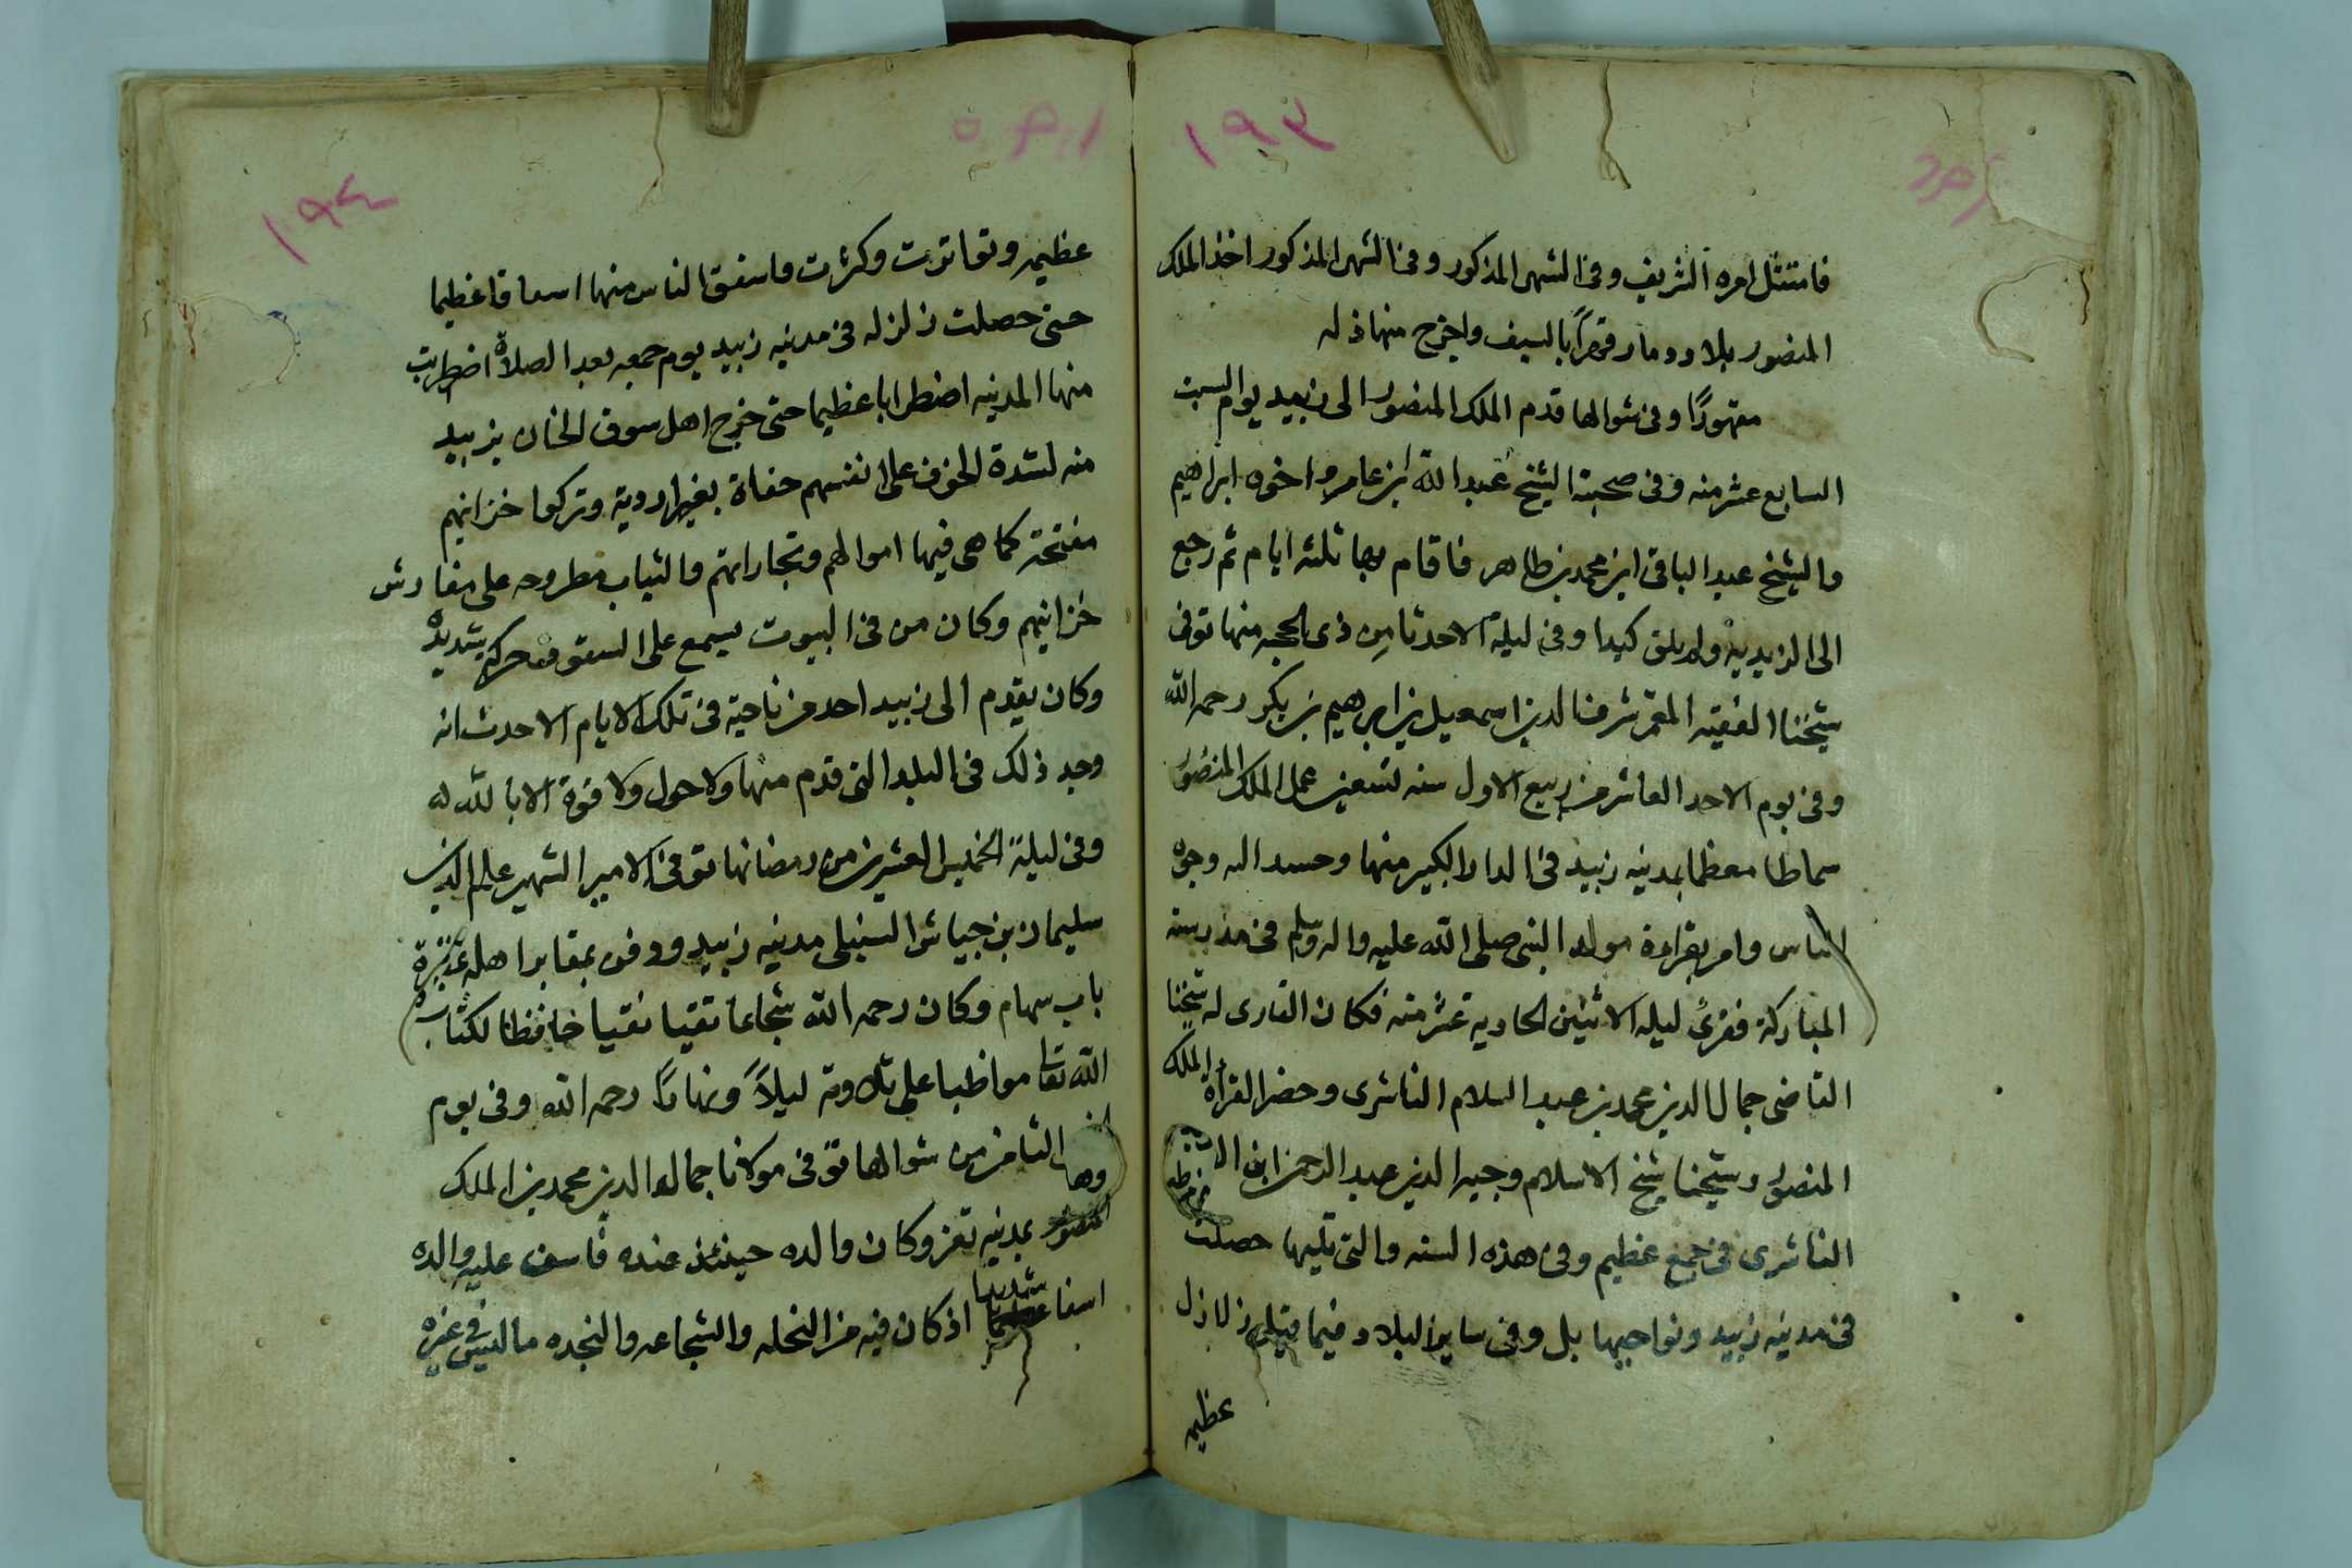 ١٩٣
فامتثل امره الشريف وفي الشهر المذكور وفي الشهر المذكور اخذ الملك
المنصور بلاد دمار قهراً بالسيف واخرج منها
مقهورًا وفي شوالها قدم الملك المنصور الى زبيد يوم السبت
السابع عشر منه وفي صحبته الشيخ عبد الله ابن عامر واخوه ابراهيم
والشيخ عبد الباقي ابن محمد بن طاهر فاقام بها ثلثه ايام ثم رجع
الى الزيديه ولم يلق كيدا وفي ليلة الاحد ثامن ذى الحجه منها توفى
شيخنا الفقيه المعمر شرف الدين اسمعيل بن ابراهيم بن بكر رحمه الله
وفي يوم الاحد العاشر من ربيع الاول سنه تسعين عمل الملك المنصور
سماطا معظما بمدينه زبيد في الدار الكبير منها وحسد اله وجوه
الناس وامر بقراءة مولد النبى صلى الله عليه واله وسلم في مدرسته
المباركة فقرئ ليله الاثنين الحاديه عشر منه فكان القارى له شيخنا
القاضى جمال الدين محمد بن عبد السلام الناشرى وحضر القرأة الملك
المنصور وشيخنا شيخ الاسلام وجيه الدين عبد الرحمن ابن
الناشرى في جمع عظيم وفي هذه السنه والتى تليها حصلت
في مدينه زبيد ونواحيها بل وفي ساير البلاد فيما قيل زلازل
عظيمه
١٩٤
عظيمه وتواترت وكثرت واسفق الناس منها اسفاقا عظيما
حتى حصلت زلزله في مدينه زبيد يوم جمعه بعد الصلاة اضطربت
منها المدينه اضطرابا عظيما حتى خرج اهل سوق الخان بزبيد
منه لشدة الخوف على انفسهم حفاة بغير اردية وتركوا خزاينهم
مفتحة كما هى فيها اموالهم وتجاراتهم والثياب مطروحه على مفارش
خزاينهم وكان من في البيوت يسمع على السقوف حركه شديده
وكان يقدم الى زبيد احد من ناحية في تلك الايام الا حدث انه
وجد ذلك في البلد التى قدم منها ولا حول ولا قوة الا بالله
وفي ليلة الخميس العشرين من رمضانها توفى الامير الشهير علم الدين
سليمان بن جياش السنبلى مدينه زبيد ودفن بمقابر اهله
باب سهام وكان رحمه الله شجاعا تقيا نقيا حافظا لكتاب
الله تعالى مواظبا على تلاوته ليلاً ونهارًا رحمه الله وفي يوم
الثامن من شوالها توفى مولانا جمال الدين محمد بن الملك
المنصور بمدينه تعز وكان والده حينئذ عنده فاسف عليه والده
اسفا شديدا اذ كان فيه من النخله والشجاعه والنجده ما ليس في غيره